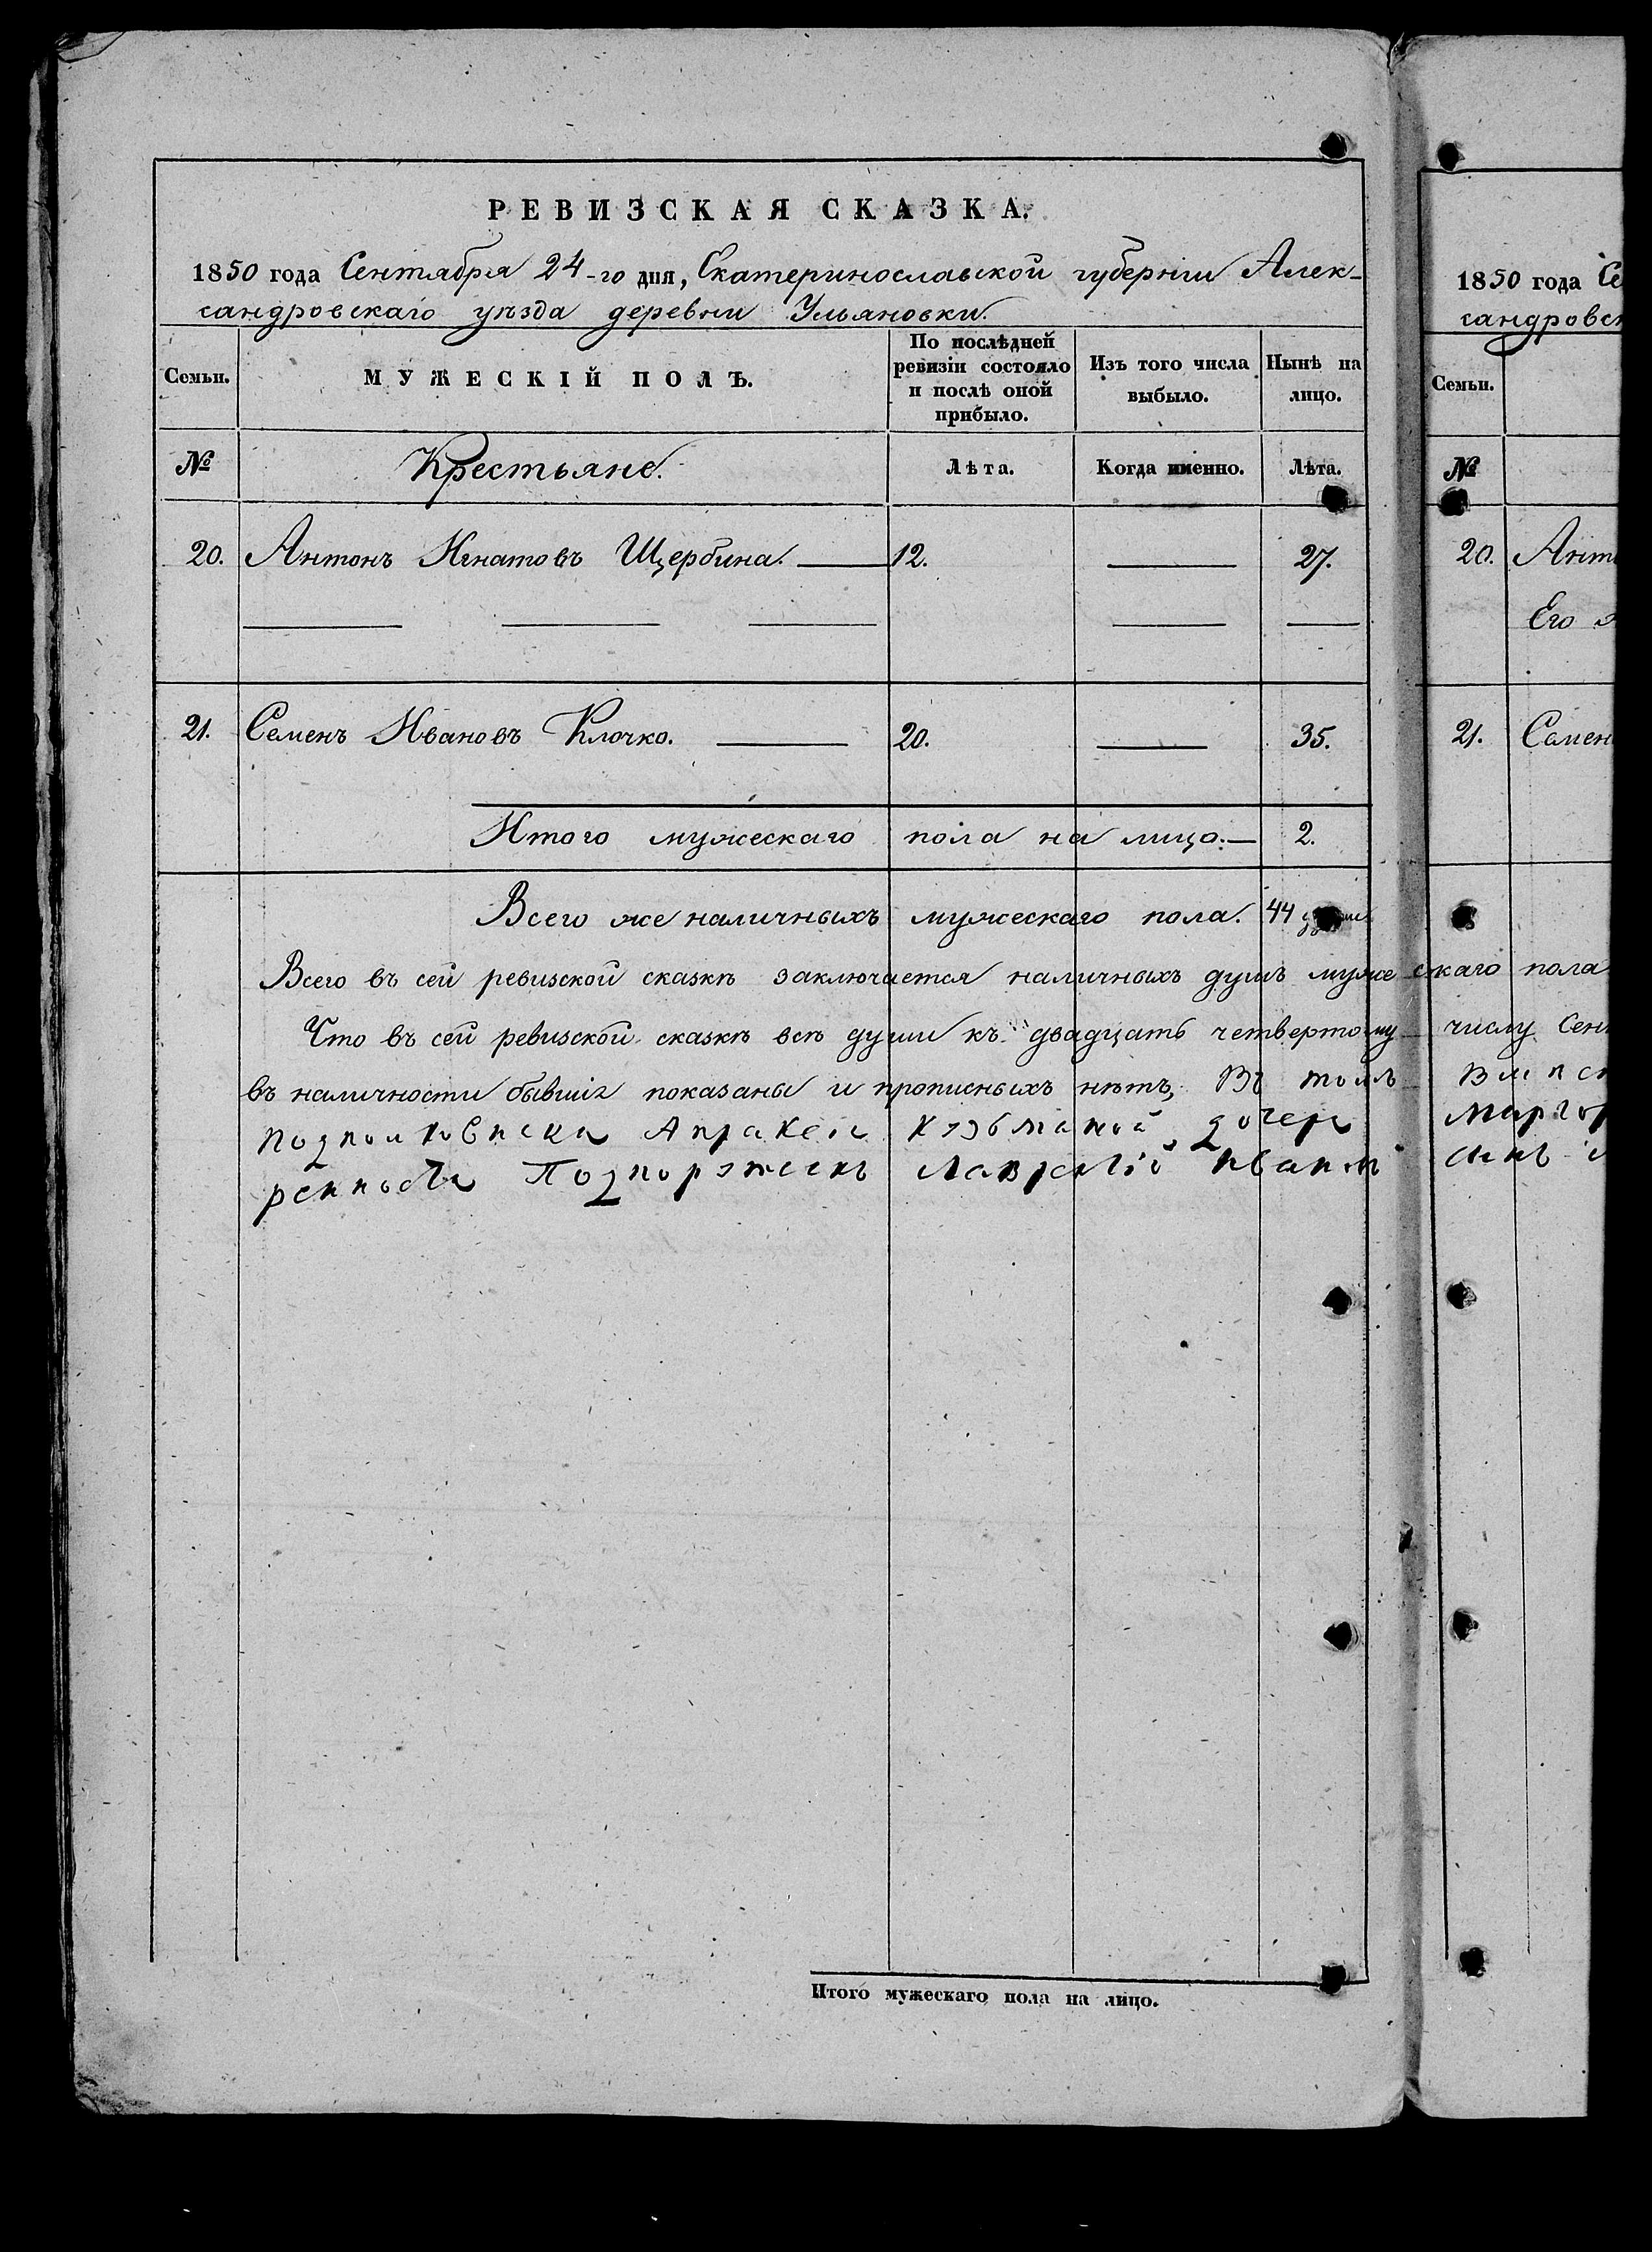 РЕВИЗСКАЯ СКАЗКА.
1850 года Сентября 24-го дня, Екатеринославской губерніи Алек-
сандровскаго уѣзда деревни Ульяновки.
Семьи.
МУЖЕСКІЙ ПОЛЪ.
По послѣдней
ревизіи состояло
и послѣ оной
прибыло.
Изъ того числа
выбыло.
Нынѣ на
лицо.
№ Крестьяне. Лѣта. Когда именно. Лѣта.
20. Антонъ Игнатовъ Щербина. 12. 27.
21. Семенъ Ивановъ Клочко. 20. 35.
Итого мужескаго пола на лицо. 2.
Всего же наличныхъ мужескаго пола. 44
Всего въ сей ревизской сказкѣ заключается наличныхъ душъ мужескаго пола
Что въ сей ревизской сказкѣ всѣ души къ двадцать четвертому числу Сен
въ наличности бывшіе показаны и прописныхъ нѣтъ, Въ томъ
Подполковника дочери
Подпоряжчикъ Лаврентій Иванов сынъ
Итого мужескаго пола на лицо.
1850 года Се
сандровск
Семьи.
№
20. Анто
Его
21. Семен